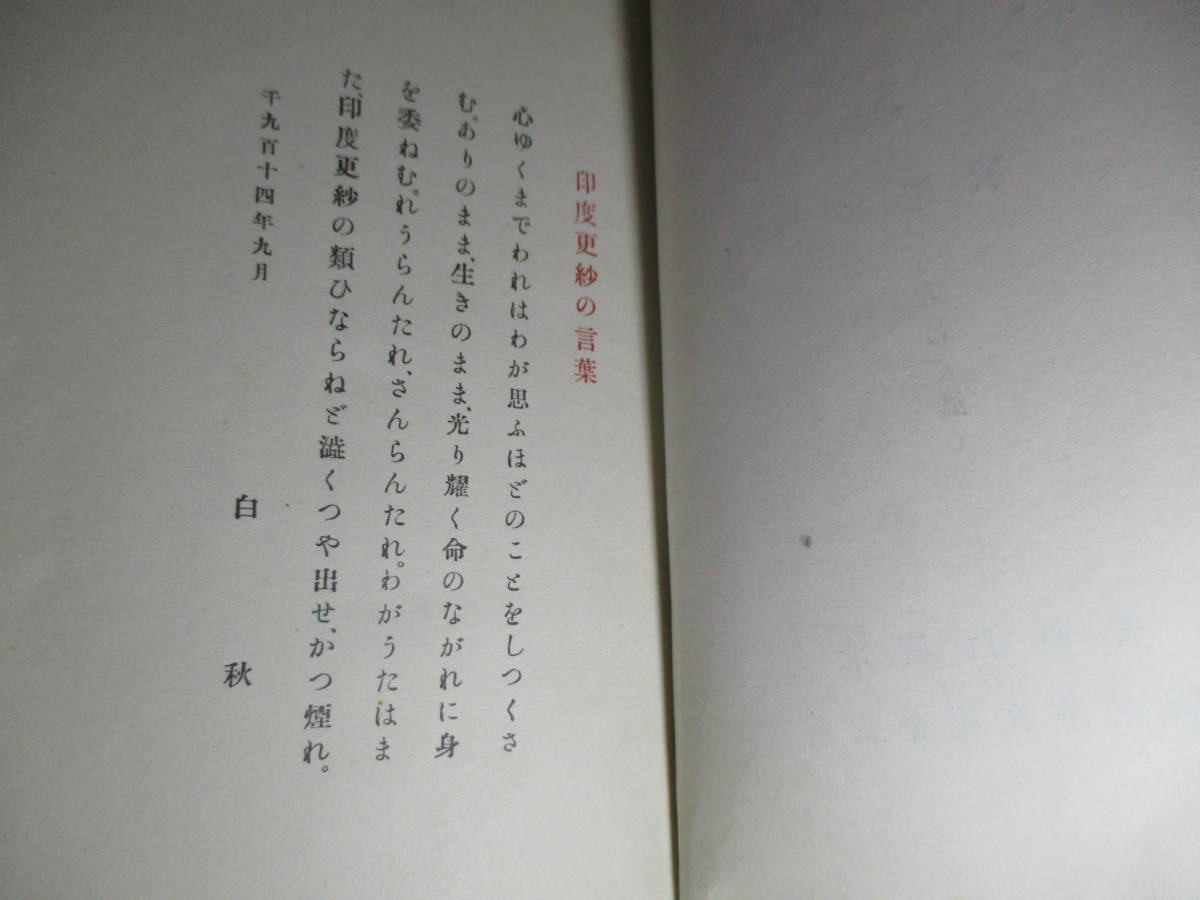 印度更紗の言葉
心ゆくまでわれはわが思ふほどのことをしつくさ
む。ありのまま、生きのまま、光り耀く命のながれに身
を委ねむ。れうらんたれ、さんらんたれ。わがうたはま
た、印度更紗の類ひならねど澁くつや出せ、かつ煙れ。
千九百十四年九月
白秋